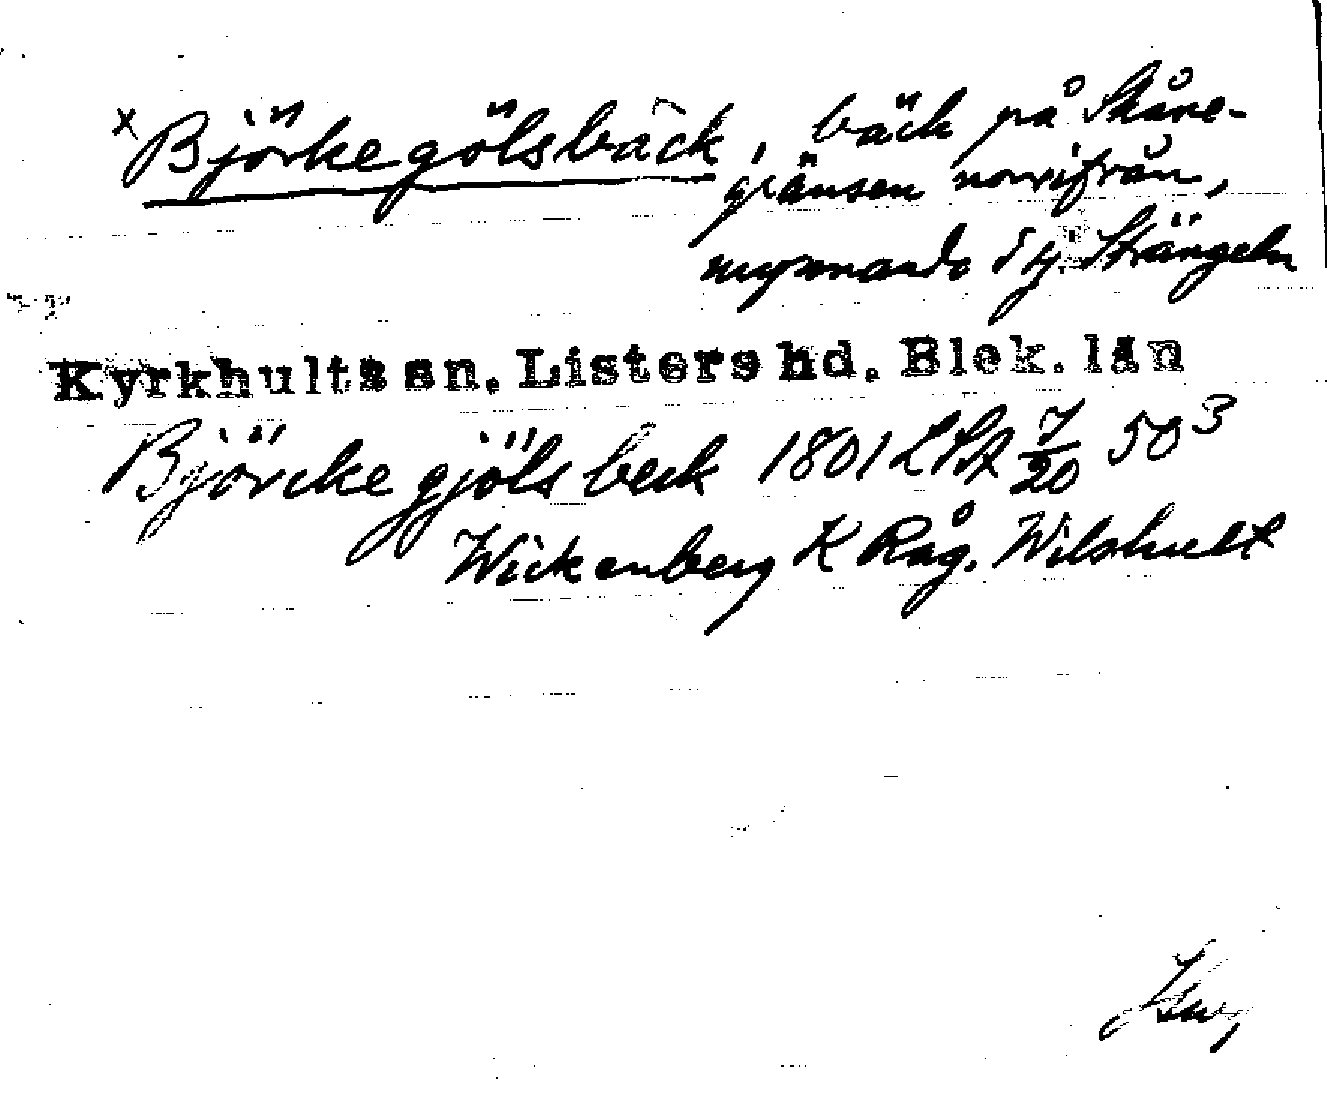 x Björkegölsbäck, bäck på Skåne-
gränsen norrifrån,
mynnande i sj. Strängeln
Kyrkhults sn. Listers hd. Blek. län
Björcke gjöls beck 1801 LSA 7/20 50³
Wickenberg K Råg. Wilshult